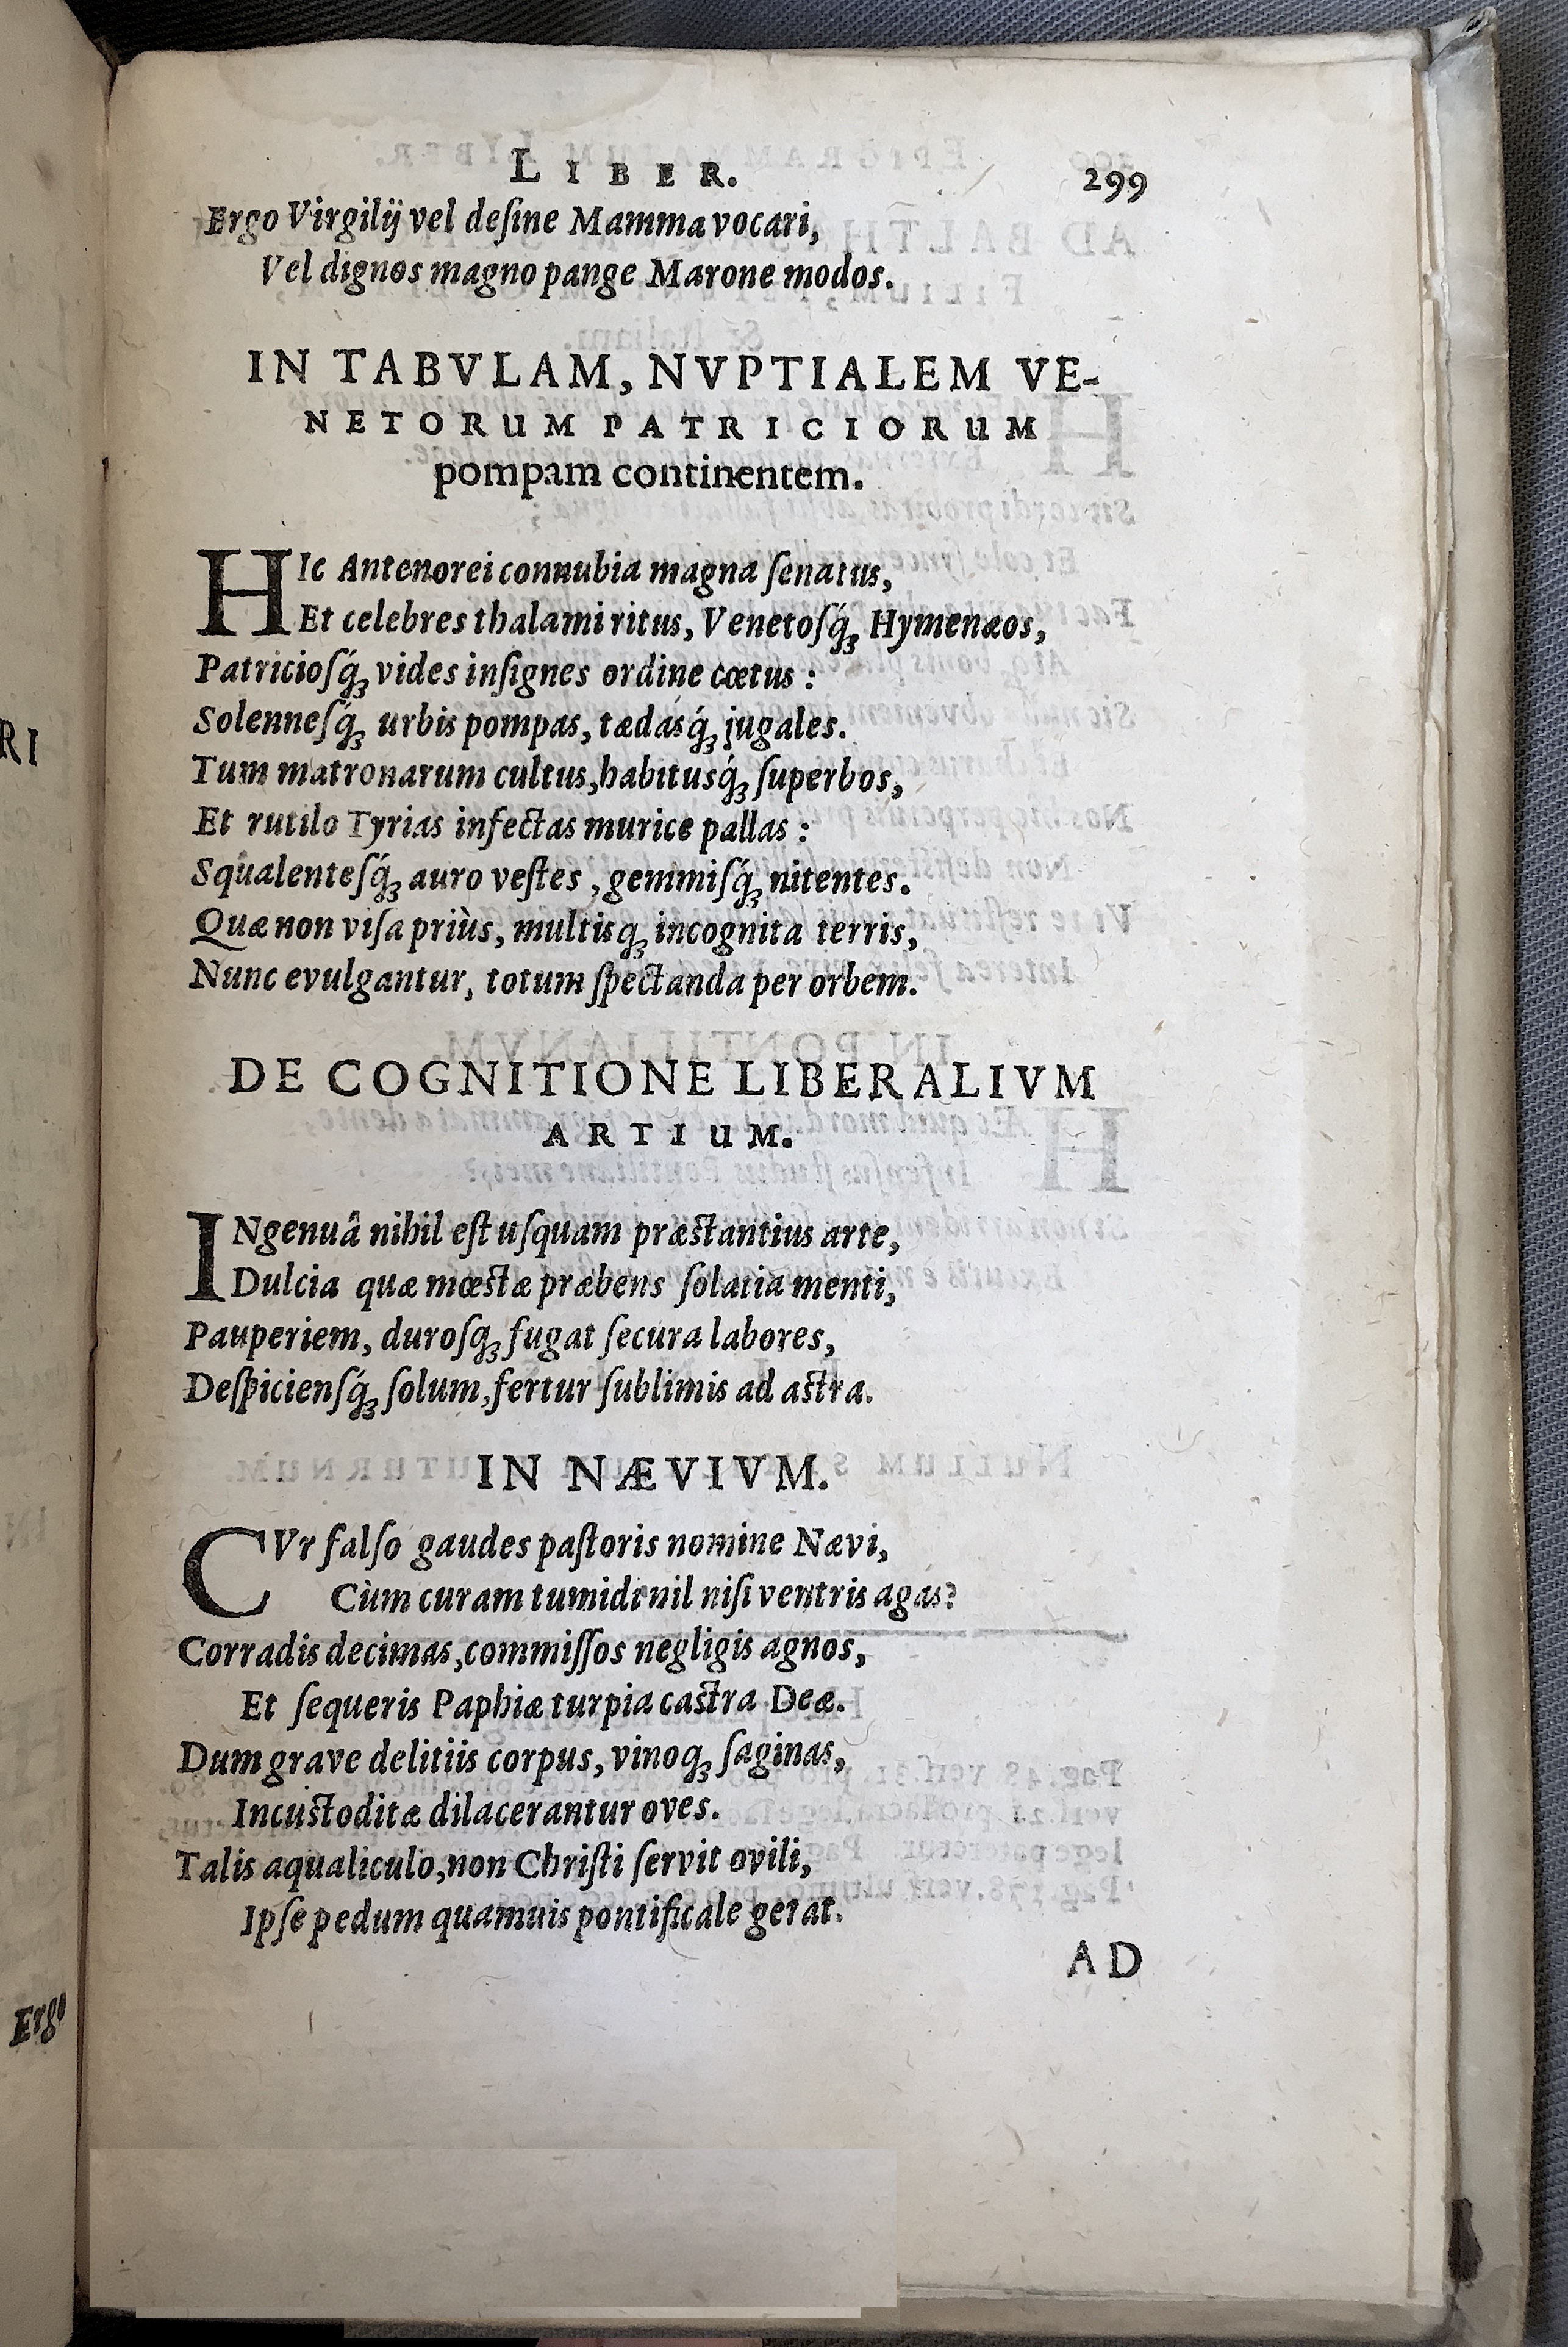 LIBER. 299
Ergo Virgilij vel deſine Mamma vocari,
Vel dignos magno pange Marone modos.
IN TABVLAM, NVPTIALEM VE-
NETORUM PATRICIORUM
pompam continentem.
HIc Antenorei connubia magna ſenatus,
Et celebres thalami ritus, Venetoſq́ꝫ Hymenæos,
Patricioſq́ꝫ vides inſignes ordine cœtus :
Solenneſq́ꝫ urbis pompas, tædasq́ꝫ jugales.
Tum matronarum cultus, habitusq́ꝫ ſuperbos,
Et rutilo Tyrias infectas murice pallas :
Squalenteſq́ꝫ auro veſtes , gemmiſq́ꝫ nitentes.
Quæ non viſa priùs, multisqꝫ incognita terris,
Nunc evulgantur, totum ſpectanda per orbem.
DE COGNITIONE LIBERALIVM
ARTIUM.
INgenuâ nihil eſt uſquam præſtantius arte,
Dulcia quæ mœſtæ præbens ſolatia menti,
Pauperiem, duroſqꝫ fugat ſecura labores,
Deſpicienſq́ꝫ ſolum, fertur ſublimis ad aſtra.
IN NÆVIVM.
CVr falſo gaudes paſtoris nomine Nævi,
Cùm curam tumidi nil niſi ventris agas?
Corradis decimas, commiſſos negligis agnos,
Et ſequeris Paphiæ turpia caſtra Deæ.
Dum grave delitiis corpus, vinoqꝫ ſaginas,
Incuſtoditæ dilacerantur oves.
Talis aqualiculo, non Chriſti ſervit ovili,
Ipſe pedum quamuis pontificale gerat.
AD
RI
Ergo